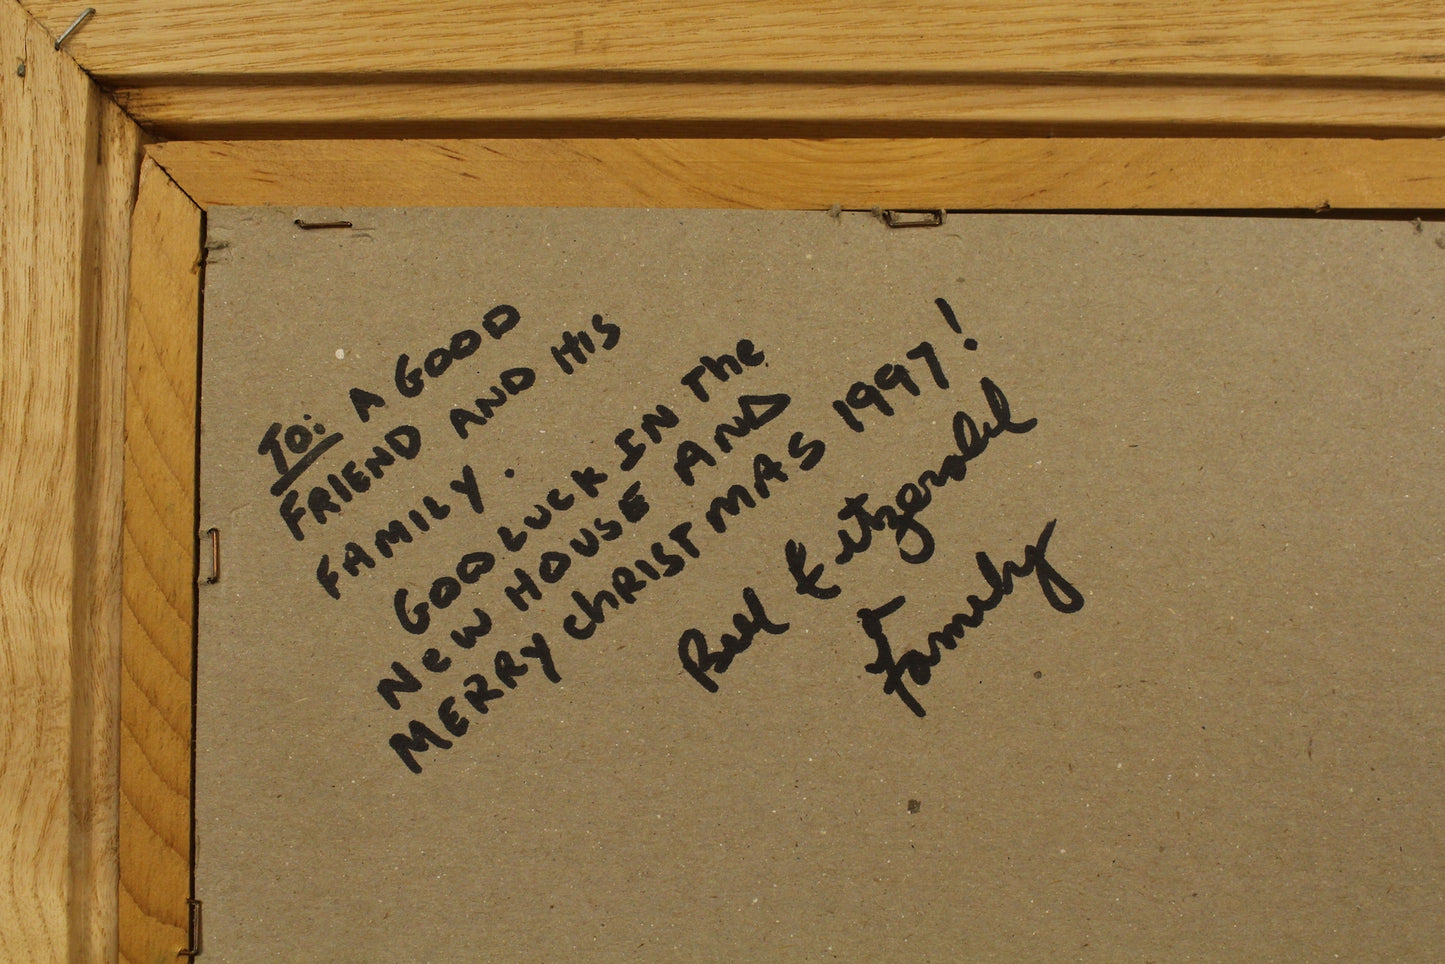 TO: A GOOD
FRIEND AND HIS
FAMILY.
GOOD LUCK IN The
New HOUSE AND
MERRY ChRISTMAS 1997!
Bill Fitzgerald
Family